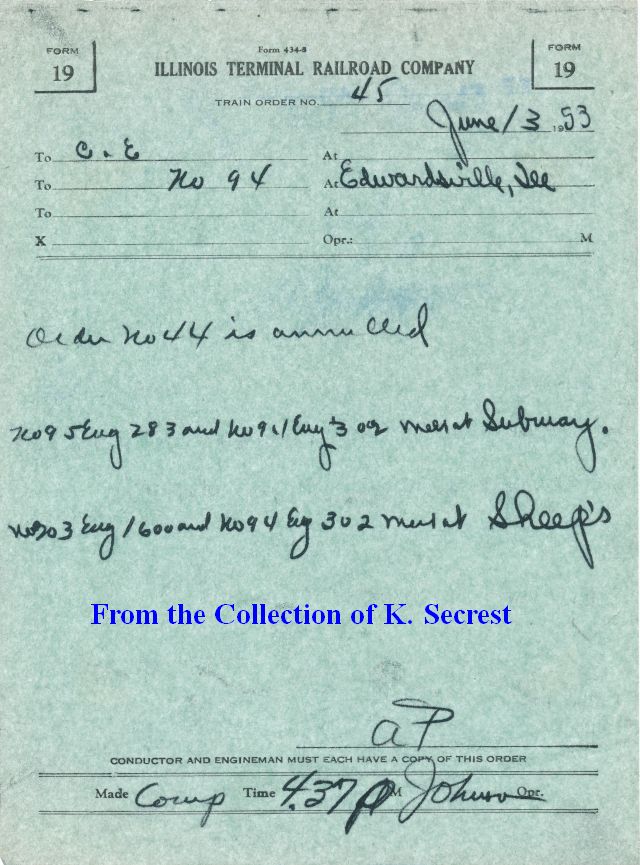 FORM 19
Form 434-S
FORM 19
ILLINOIS TERMINAL RAILROAD COMPANY
TRAIN ORDER NO. 45
June 13 1953
To C. E At
To No 94 At Edwardsville, Ill
To At
X Opr.: M
Order No 44 is annulled
No 95 Eng 283 and No 94 Eng 302 meet at Subway.
No 203 Eng 1600 and No 94 Eng 302 meet at Sheep's
From the Collection of K. Secrest
AP
CONDUCTOR AND ENGINEMAN MUST EACH HAVE A COPY OF THIS ORDER
Made Comp Time 4.37 P M Johnson Opr.